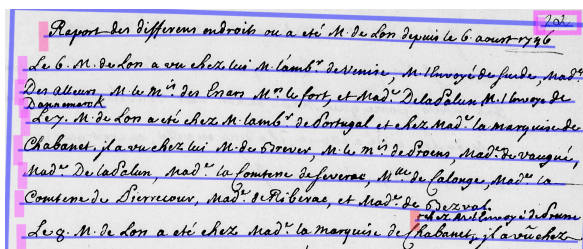 202
Raport des differens endroits ou a eté M. de Lon depuis le 6. aoust 1746
Le 6. M. de Lon a vu chez lui M. l'amb.r de Venise, M. l'Envoyé de Suede, Mad.e
Des alleurs, M. le m.is des Enars M.r le fort, et Mad.e De la Salun M. l'Envoyé de
Dannemarck
Le 7. M. de Lon a eté chez M. l'amb.r de Portugal et chez Mad.e la marquise de
Chabanet, il a vu chez lui M. de Brever, M. le m.is de Broens, Mad.e de vaugué,
Mad.e De la Salun, Mad.e la Comtene de Severac, M.lle de Calonge, Mad.e la
Comtene de Pierrecour, Mad.e de Riberac, et Mad.e de Bezval.
chez M. l'Envoyé de Prune
Le 8. M. de Lon a eté chez Mad.e la marquise de Chabanet, il a vû chez